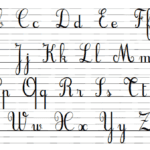 Cc Dd Ee Ff
Jj Kk Ll Mm
p Qq Rr Ss Tt
Ww Xx Yy Z